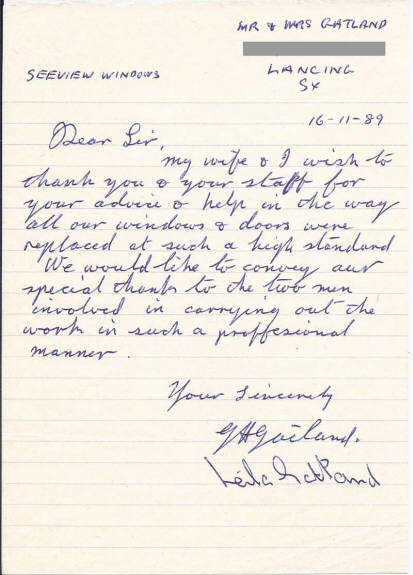 MR & MRS GATLAND
SEEVIEW WINDOWS
LANCING
SX
16-11-89
Dear Sir,
my wife & I wish to
thank you & your staff for
your advice & help in the way
all our windows & doors were
replaced at such a high standard
We would like to convey our
special thanks to the two men
involved in carrying out the
work in such a proffesional
manner.
Your Sincerely
GHGatland.
Leila Gatland